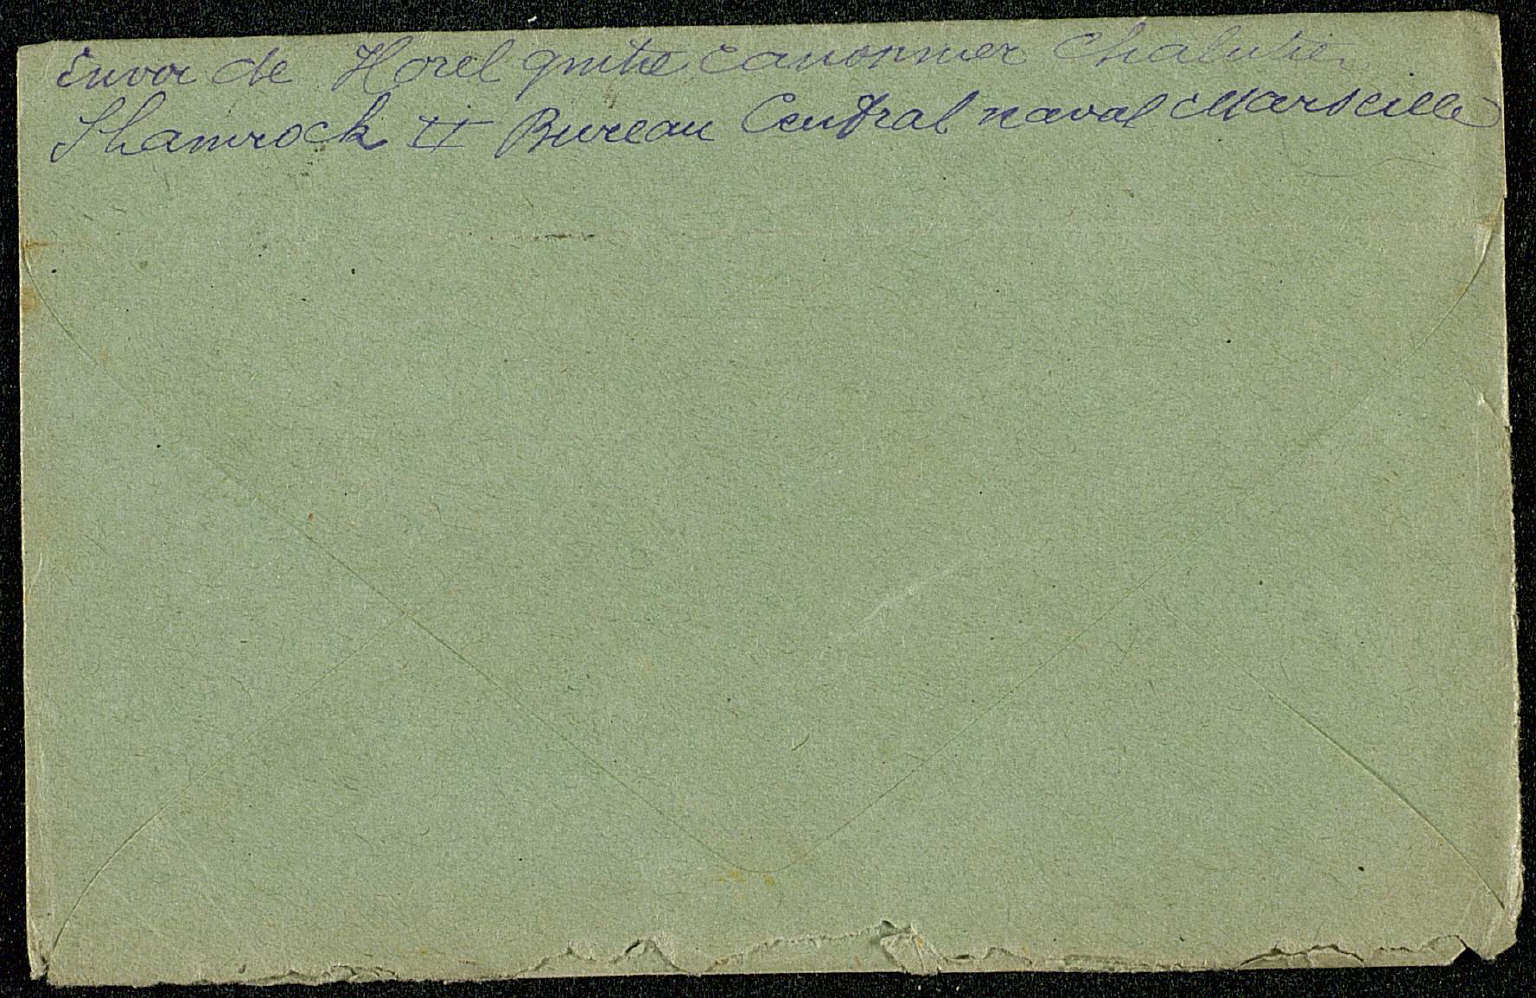 Envoi de Horel qmtre canonnier Chalutier
Shamrock II Bureau Central naval Marseille